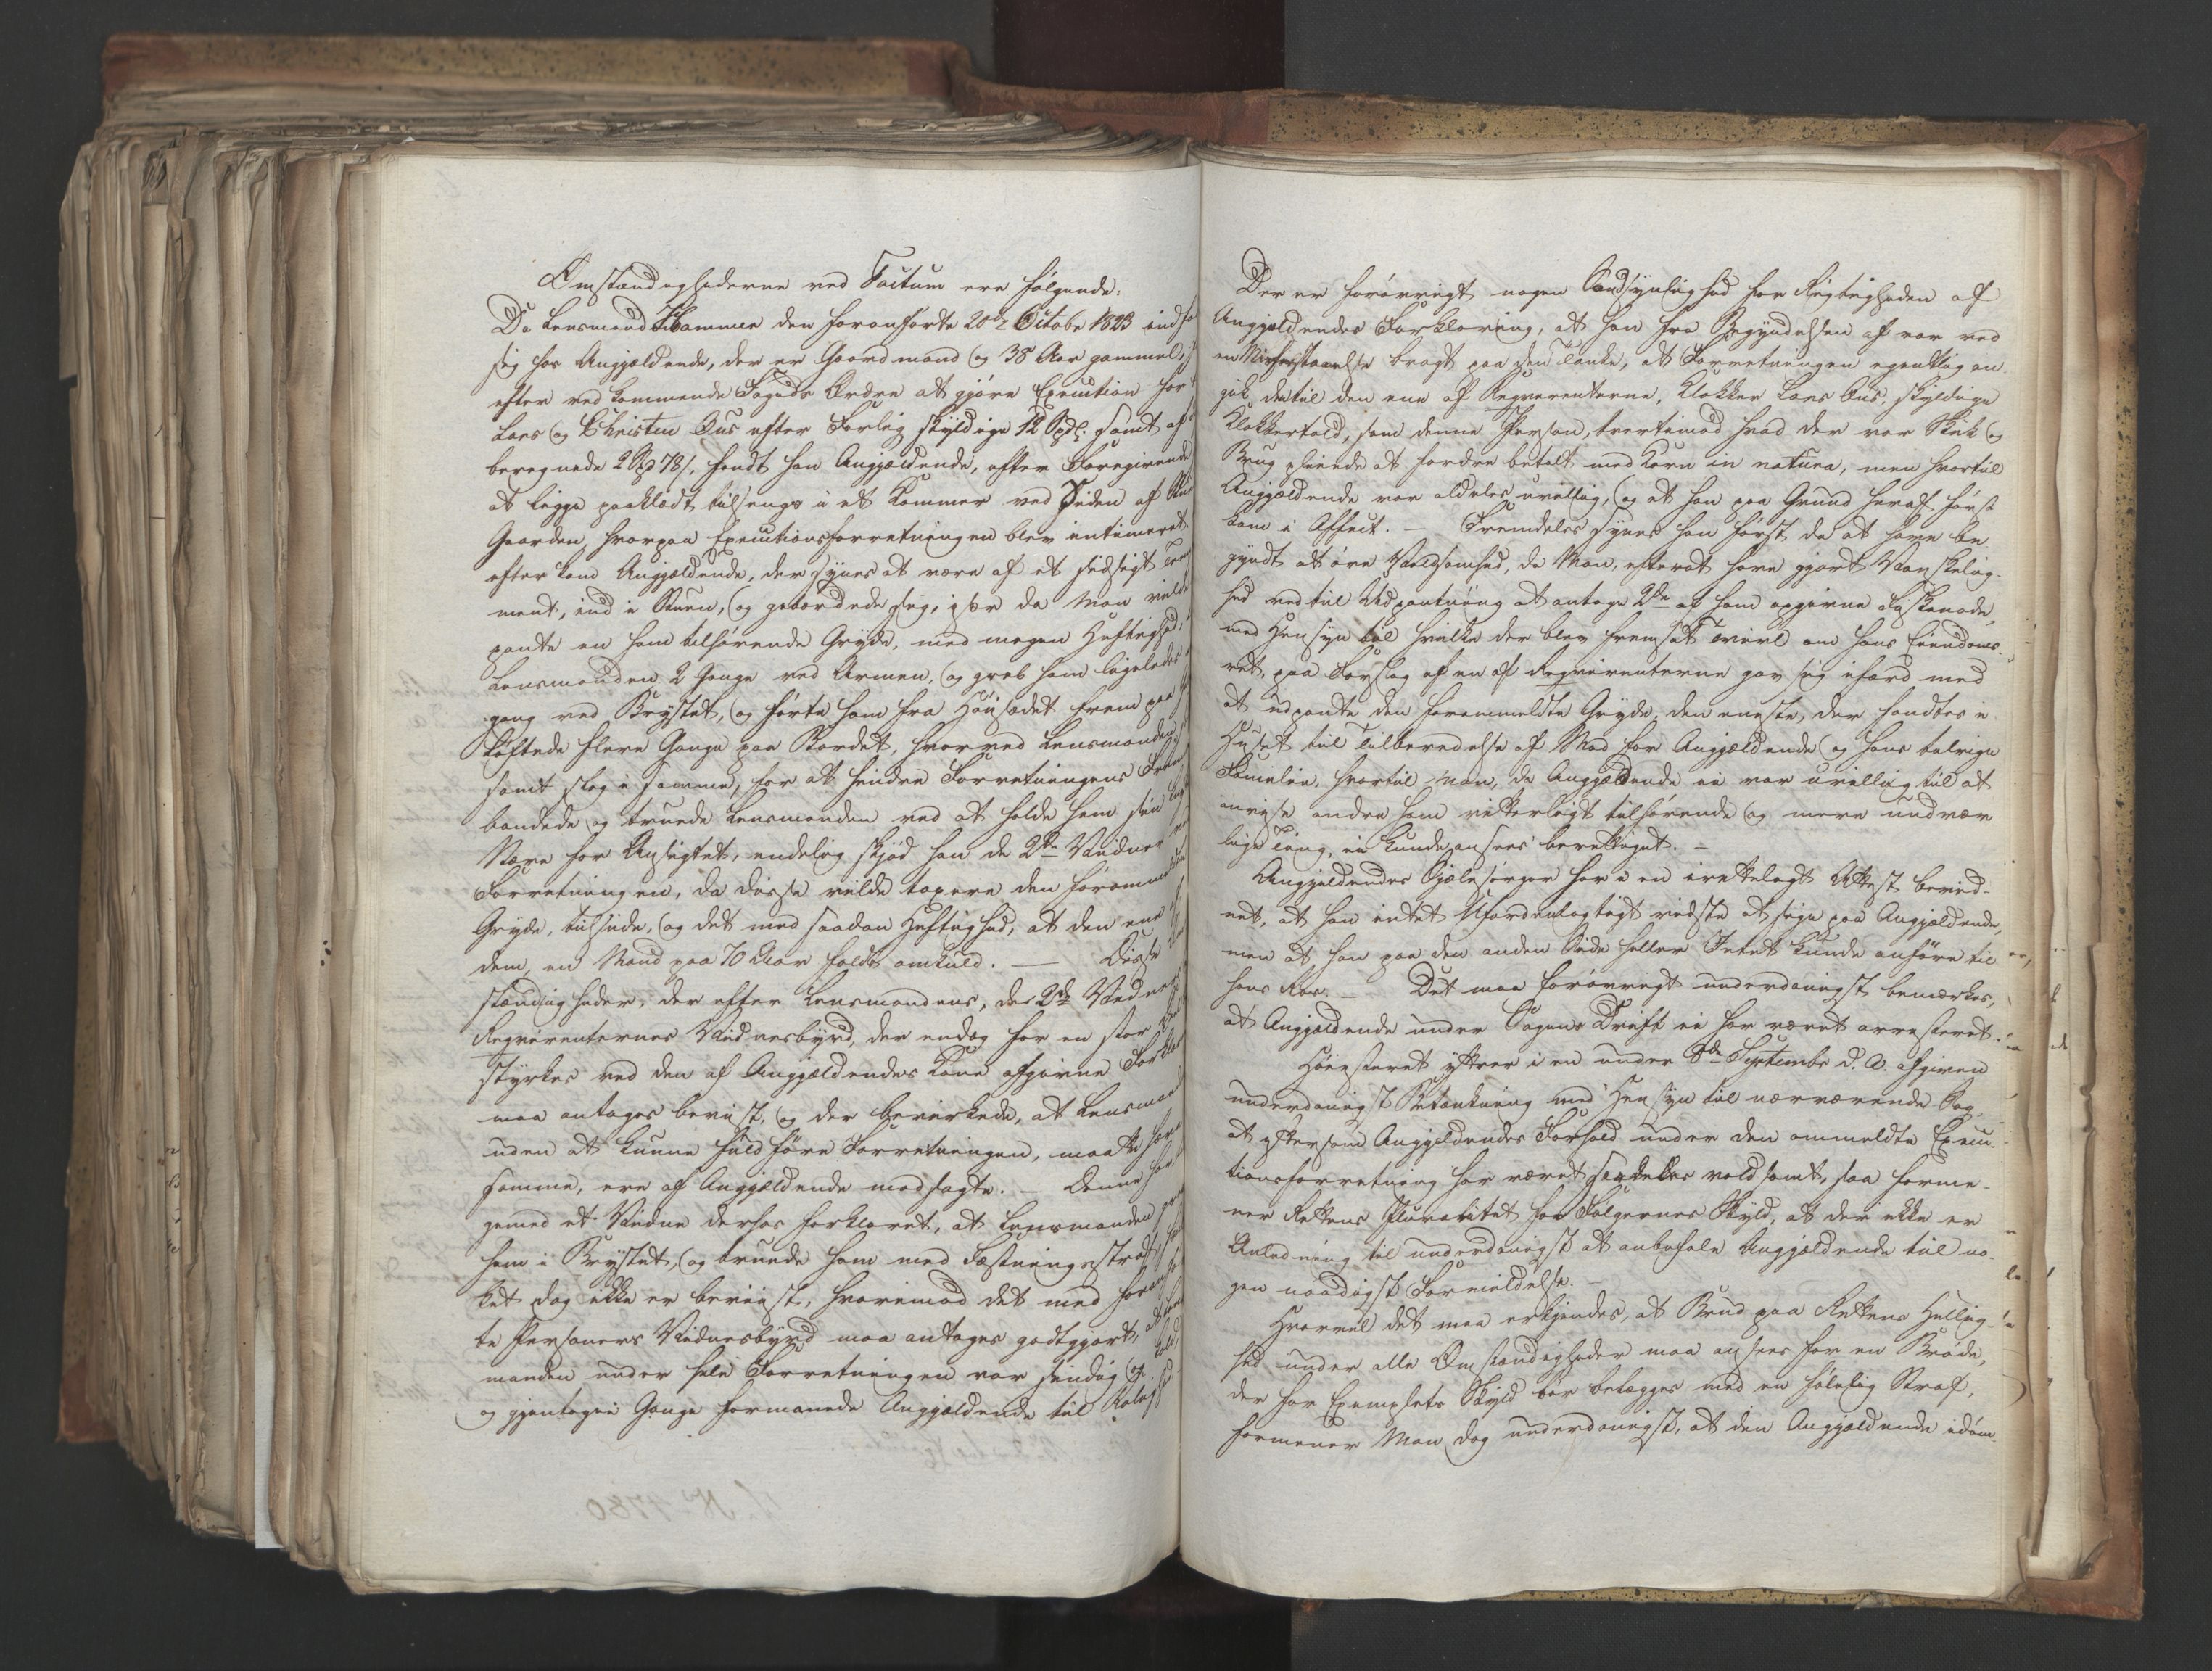 Omstændighederne ved Factum ere følgende:
Da Lensmand Hammer den foranførte 20de Octobr 1823 indfa
sig hos Angjældende, der er Gaardmand og 38 Aar gammel,
efter vedkommende Fogeds Ordre at gjøre Execution for
Lars og Christen Aus efter Forlig skyldige 12 Spdl. samt af
beregnede 2 Spd 78 s, fandt han Angjældende, efter Foregivende
at ligge paaklædt tilsengs i et Kammer ved Siden af
Gaarden, hvorpaa Executionsforretningen blev intimeret
efter kom Angjældende, der synes at være af et hidsigt Tem
ment, ind i Stuen, og gebærdede sig, især da Man vilde
pante en ham tilhørende Gryde, med megen Heftighed,
Lensmanden 2 Gange ved Armen, og greb ham ligeledes
gang ved Brystet, og førte ham fra Høisædet frem paa
løftede flere Gange paa Bordet, hvorved Lensmanden
samt slog i samme, for at hindre Forretningens Frem
bandede og truede Lensmanden ved at holde ham sin
Næve for Ansigtet, endelig skjød han de 2de Vidner
Forretningen, da disse vilde taxere den foromme
Gryde, tilside, og det med saadan Heftighed, at den ene af
dem, en Mand paa 70 Aar faldt omkuld. — Disse
stændigheder, der efter Lensmandens, de 2de Vidners
Reqvirenternes Vidnesbyrd, der endog for en stor Deel
styrkes ved den af Angjældendes Kone afgivne Forklar
maa antages beviist, og der bevirkede, at Lensmand
uden at kunne fuldføre Forretningen, maatte hæve
samme, ere af Angjældende modsagte. — Denne har
gemed et Vidne derhos forklaret, at Lensmanden greb
ham i Brystet, og truede ham med Fæstningsstraf,
ket dog ikke er beviist, hvorimod det med foranfø
te Personers Vidnesbyrd maa antages godtgjort, at
manden under hele Forretningen var sindig og
og gjentagne Gange formanede Angjældende til Rolighed.
Der er forøvrigt nogen Sandsynlighed for Rigtigheden af
Angjældendes Forklaring, at han fra Begyndelsen af var ved
en Misforstaaelse bragt paa den Tanke, at Forretningen egentlig an
gik det til den ene af Reqvirenterne, Klokker Lars Aus, skyldige
Klokkertold, som denne Person, tvertimod hvad der var Skik og
Brug pleiede at fordre betalt med Korn in natura, men hvortil
Angjældende var aldeles uvillig, og at han paa Grund heraf først
kom i Affect. — Fremdeles synes han først da at have be
gyndt at øve Voldsomhed, da Man, efterat have gjort Vanskelig-
hed ved til Udpantning at antage 2de af ham opgivne Fiskenode,
med Hensyn til hvilke der blev fremsat Tvivl om hans Eiendoms-
ret, paa Forslag af en af Reqvirenterne gav sig ifærd med
at udpante den forommeldte Gryde, den eneste, der fandtes i
Huset til Tilberedelse af Mad for Angjældende og hans talrige
Familie, hvortil Man, da Angjældende ei var uvillig til at
anvise andre ham vitterligt tilhørende og mere undvær
lige Ting, ei kunde ansees berettiget. —
Angjældendes Sjælesørger har i en irettelagt Attest bevid-
net, at han intet Ufordeelagtigt vidste at sige paa Angjældende,
men at han paa den anden Side heller Intet kunde anføre til
hans Roes. — Det maa forøvrigt underdanigst bemærkes,
at Angjældende under Sagens Drift ei har været arresteret.
Høiesteret yttrer i en under 8de Septembr d. A. afgiven
underdanigst Betænkning med Hensyn til nærværende Sag,
at eftersom Angjældendes Forhold under den ommeldte Execu-
tionsforretning har været særdeles voldsomt, saa forme-
ner Rettens Pluralitet for Følgernes Skyld, at der ikke er
Anledning til underdanigst at anbefale Angjældende til no-
gen naadigst Formildelse. —
Hvorvel det maa erkjendes, at Brud paa Rettens Hellig-
hed under alle Omstændigheder maa ansees for en Brøde,
der for Exemplets Skyld bør belægges med en følelig Straf,
formener Man dog underdanigst, at den Angjældende idøm-